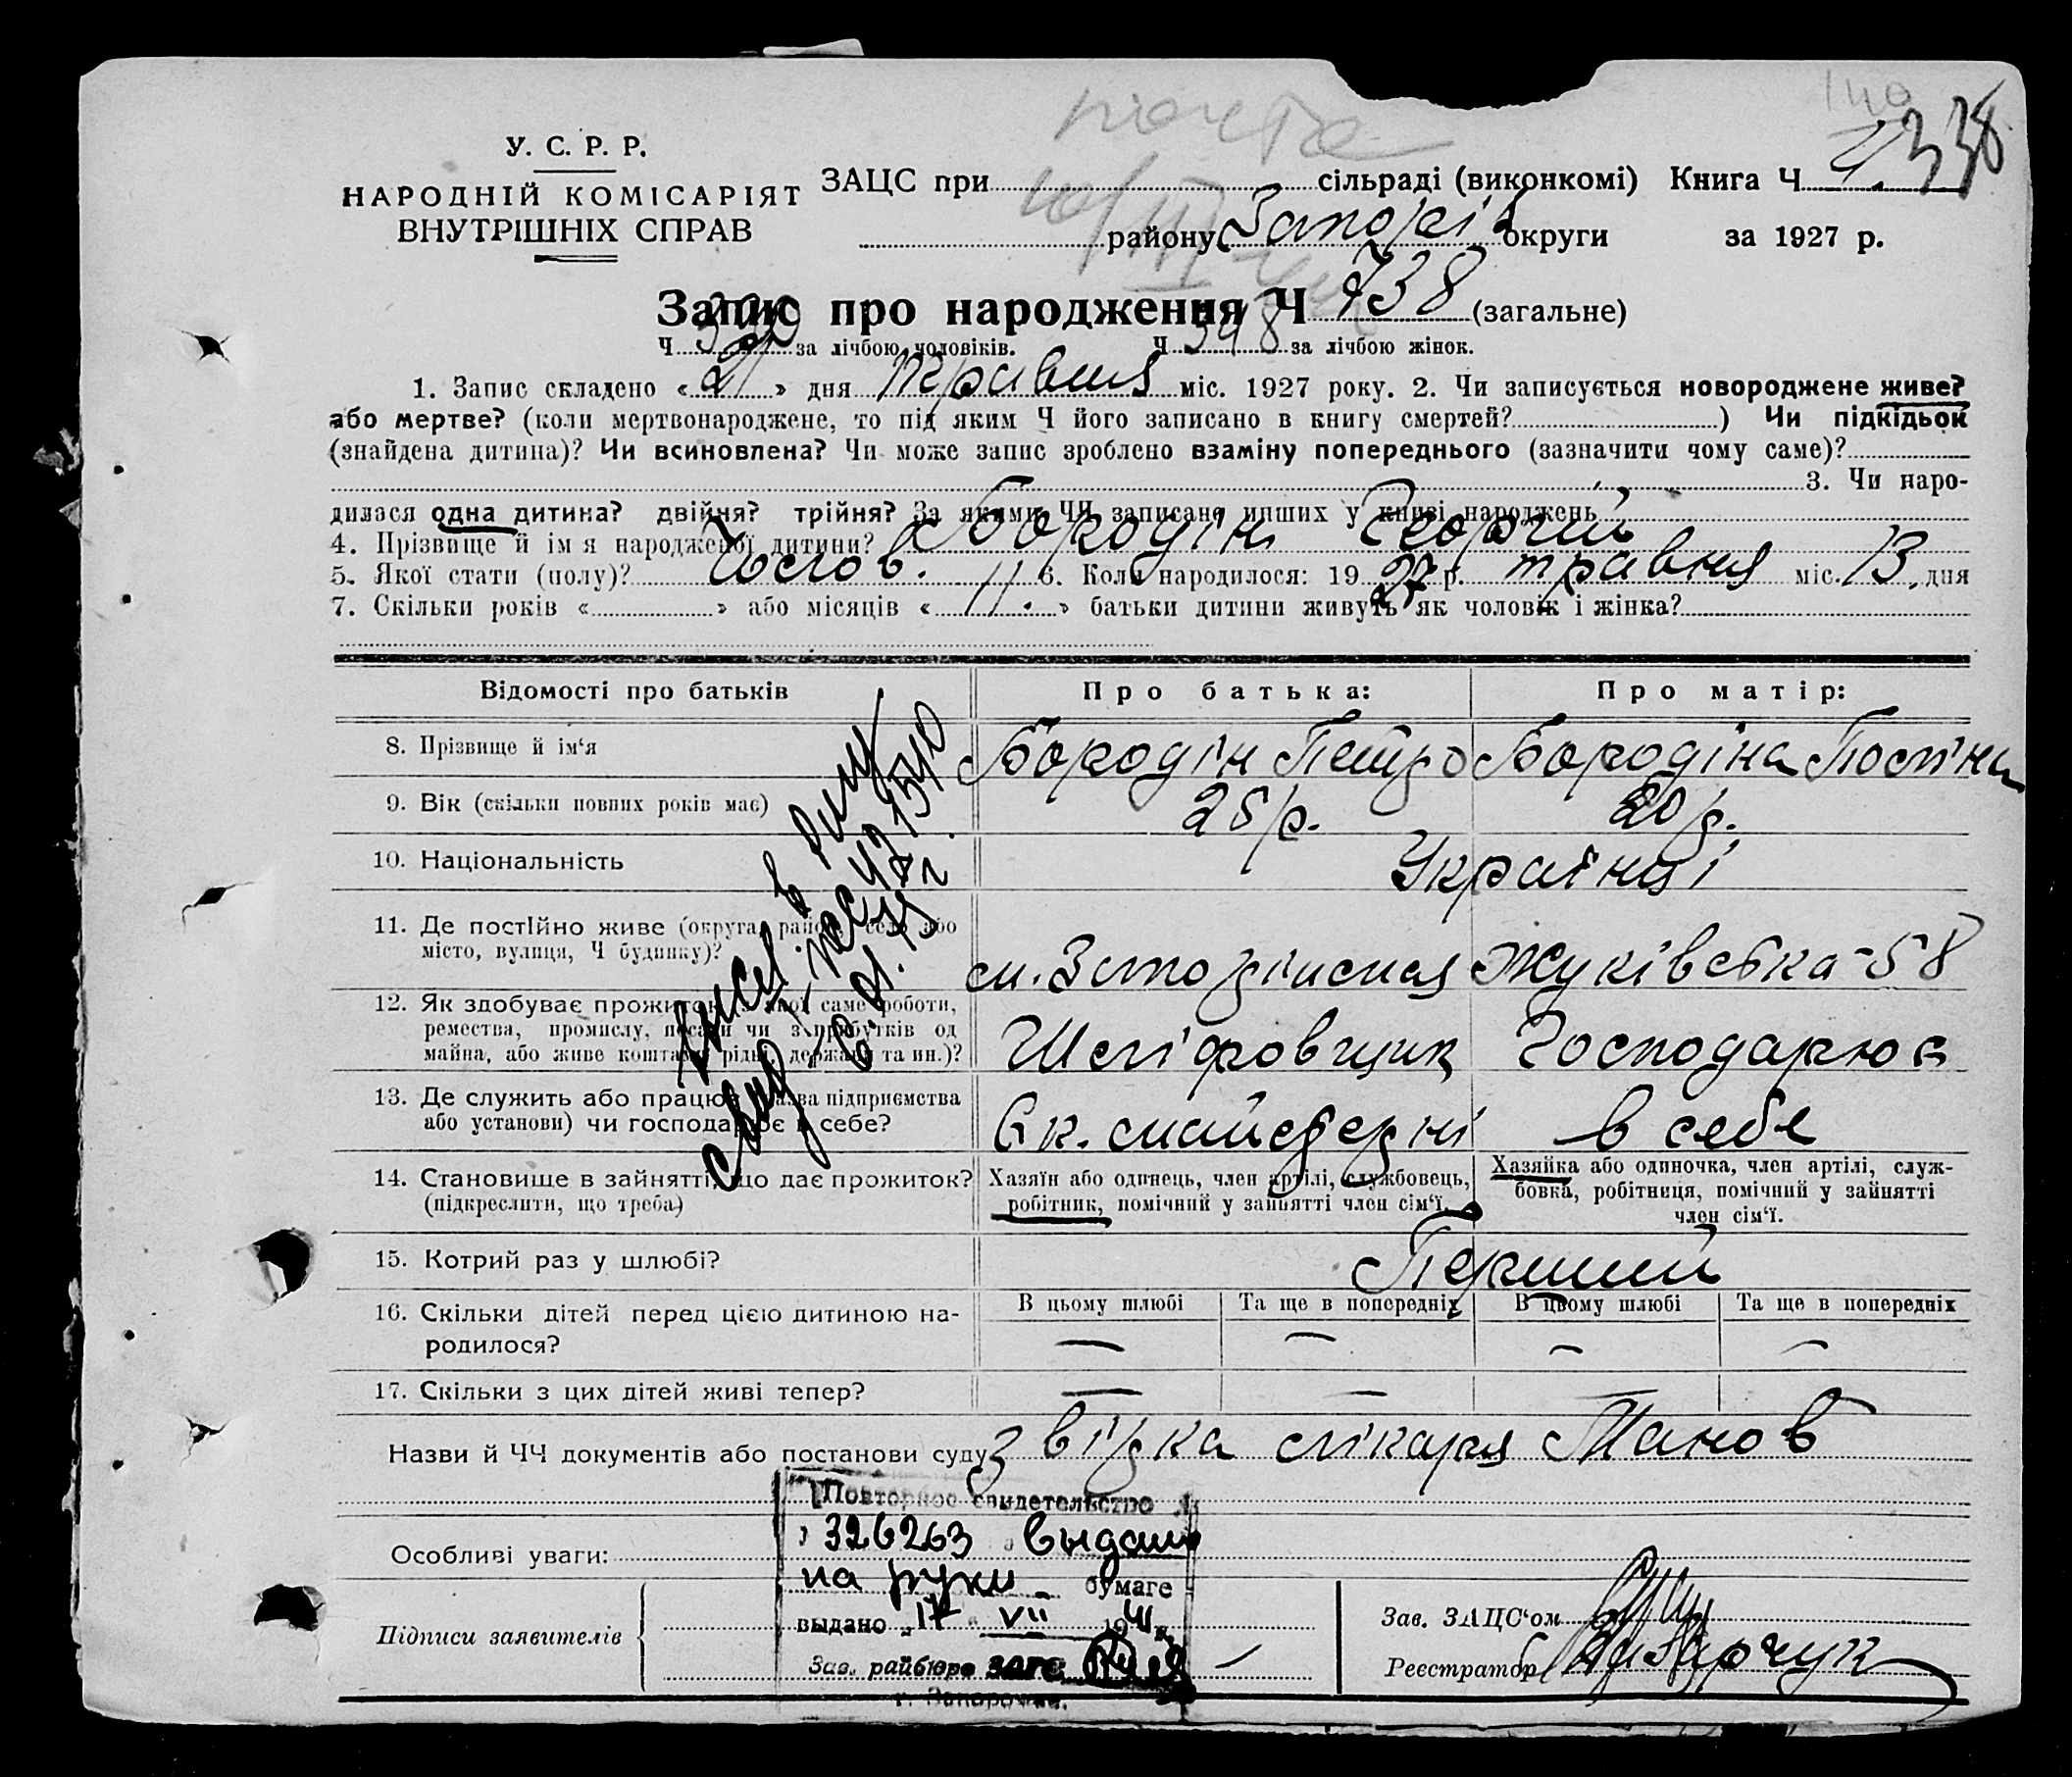 338
У. С. Р. Р.
НАРОДНІЙ КОМІСАРІЯТ
ВНУТРІШНІХ СПРАВ
ЗАЦС при сільраді (виконкомі) Книга Ч
району Запоріз округи за 1927 р.
Запис про народження Ч 738 (загальне)
Ч за лічбою чоловіків. Ч 348 за лічбою жінок.
1. Запис складено « 21 » дня травня міс. 1927 року. 2. Чи записується новороджене живе?
або мертве? (коли мертвонароджене, то під яким Ч його записано в книгу смертей? ) Чи підкідьок
(знайдена дитина)? Чи всиновлена? Чи може запис зроблено взаміну попереднього (зазначити чому саме)?
3. Чи наро-
дилася одна дитина? двійня? трійня? За якими ЧЧ записано инших у книзі народжень
4. Прізвище й ім я народженої дитини? Бородін Георгій
5. Якої стати (полу)? Чолов. 6. Коли народилося: 19 27 р. травня міс. 13 дня
7. Скільки років « » або місяців « 11. » батьки дитини живуть як чоловік і жінка?
Відомості про батьків Про батька: Про матір:
8. Прізвище й ім'я Бородін Петро Бородіна Поліна
9. Вік (скільки повних років має) 25 р. 20 р.
10. Національність Українці
11. Де постійно живе (округа, район, село або
місто, вулиця, Ч будинку)? м. Запоріжжя Жуківська - 58
12. Як здобуває прожиток (з якої саме роботи,
ремества, промислу, посади чи з прибутків од
майна, або живе коштами рідні, держави та ин.)? Шліфовщик Господарює
13. Де служить або працює (назва підприємства
або установи) чи господарює в себе? майстерні в себе
14. Становище в зайнятті, що дає прожиток?
(підкреслити, що треба)
Хазяїн або одинець, член артілі, службовець,
робітник, помічний у зайнятті член сім'ї.
Хазяйка або одиночка, член артілі, служ-
бовка, робітниця, помічний у зайнятті
член сім'ї.
15. Котрий раз у шлюбі? Перший
16. Скільки дітей перед цією дитиною на-
родилося?
В цьому шлюбі Та ще в попередніх В цьому шлюбі Та ще в попередніх
— — — —
17. Скільки з цих дітей живі тепер? — — — —
Назви й ЧЧ документів або постанови суду звірка лікаря Танов
Повторное свидетельство
326263 выдано
на руки бумаге
выдано „17" VII 1941 г.
Зав. райбюро ЗАГС
г. Запорожья.
Особливі уваги:
Підписи заявителів
Зав. ЗАЦС'ом
Реєстратор